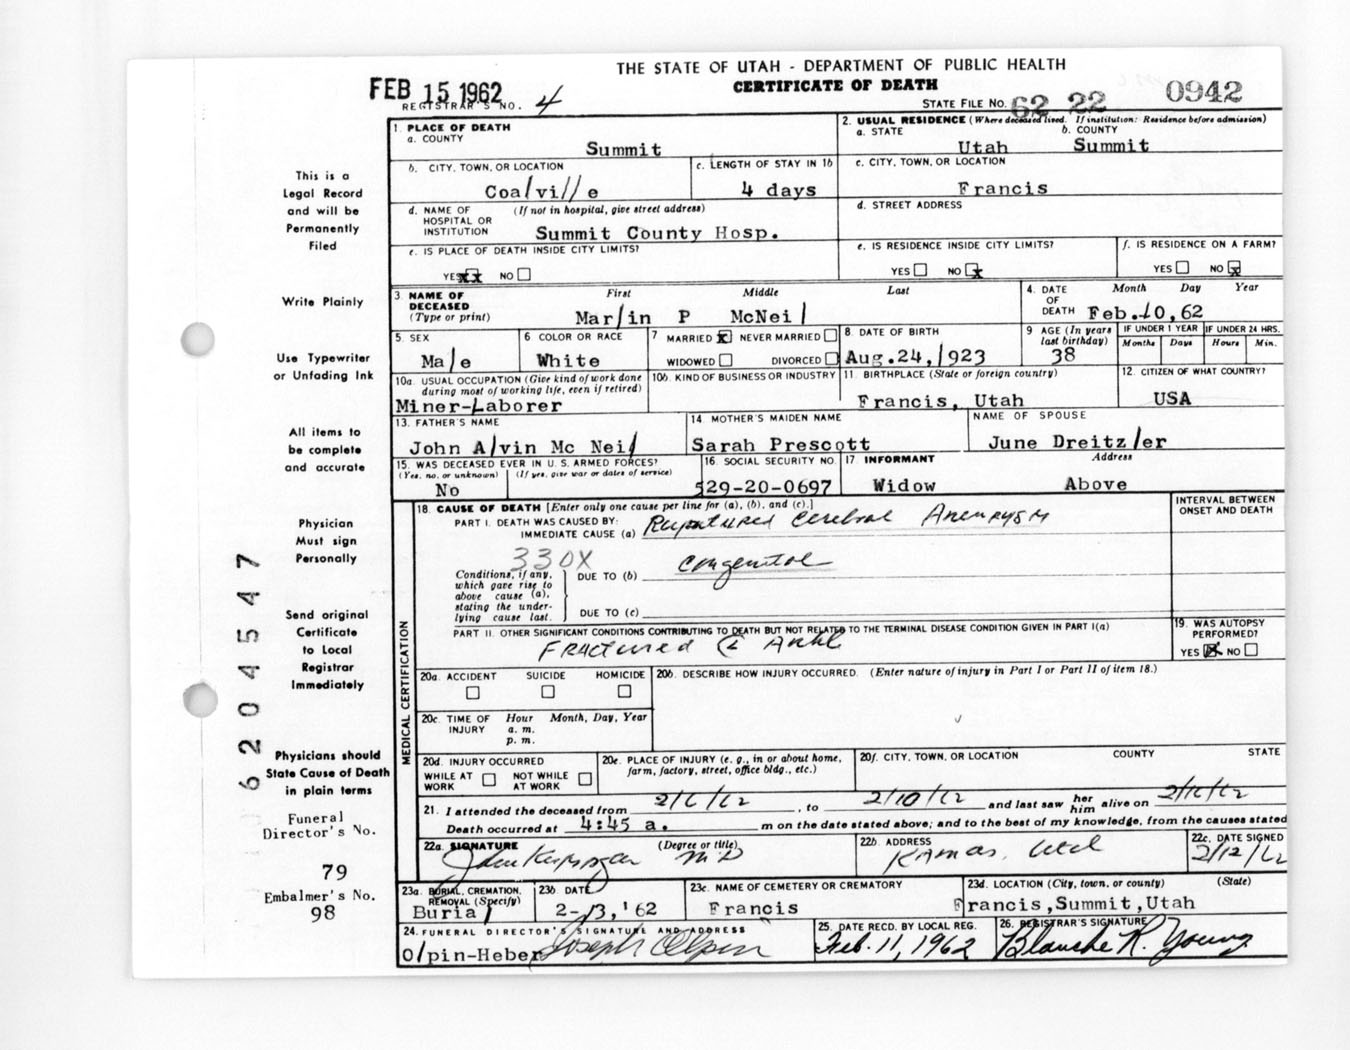 THE STATE OF UTAH - DEPARTMENT OF PUBLIC HEALTH
CERTIFICATE OF DEATH
FEB 15 1962
REGISTRAR'S NO. 4
STATE FILE NO. 62 22 0942
This is a
Legal Record
and will be
Permanently
Filed
Write Plainly
Use Typewriter
or Unfading Ink
All items to
be complete
and accurate
Physician
Must sign
Personally
Send original
Certificate
to Local
Registrar
Immediately
Physicians should
State Cause of Death
in plain terms
Funeral
Director's No.
79
Embalmer's No.
98
6204547
1. PLACE OF DEATH
a. COUNTY
Summit
2. USUAL RESIDENCE (Where deceased lived. If institution: Residence before admission)
a. STATE b. COUNTY
Utah Summit
b. CITY, TOWN, OR LOCATION
Coalville
c. LENGTH OF STAY IN 1b
4 days
c. CITY, TOWN, OR LOCATION
Francis
d. NAME OF (If not in hospital, give street address)
HOSPITAL OR
INSTITUTION Summit County Hosp.
d. STREET ADDRESS
e. IS PLACE OF DEATH INSIDE CITY LIMITS?
YES xx NO
e. IS RESIDENCE INSIDE CITY LIMITS?
YES NO x
f. IS RESIDENCE ON A FARM?
YES NO x
3. NAME OF First Middle Last
DECEASED
(Type or print) Marlin P McNeil
4. DATE Month Day Year
OF
DEATH Feb.10,62
5. SEX
Male
6 COLOR OR RACE
White
7 MARRIED x NEVER MARRIED
WIDOWED DIVORCED
8 DATE OF BIRTH
Aug.24,1923
9 AGE (In years
last birthday)
38
IF UNDER 1 YEAR IF UNDER 24 HRS.
Months Days Hours Min.
10a. USUAL OCCUPATION (Give kind of work done
during most of working life, even if retired)
Miner-Laborer
10b. KIND OF BUSINESS OR INDUSTRY
11 BIRTHPLACE (State or foreign country)
Francis, Utah
12. CITIZEN OF WHAT COUNTRY?
USA
13. FATHER'S NAME
John Alvin Mc Neil
14 MOTHER'S MAIDEN NAME
Sarah Prescott
NAME OF SPOUSE
June Dreitzler
15. WAS DECEASED EVER IN U.S. ARMED FORCES?
(Yes, no, or unknown) (If yes, give war or dates of service)
No
16. SOCIAL SECURITY NO.
529-20-0697
17 INFORMANT Address
Widow Above
MEDICAL CERTIFICATION
18. CAUSE OF DEATH [Enter only one cause per line for (a), (b), and (c).]
INTERVAL BETWEEN
ONSET AND DEATH
PART I. DEATH WAS CAUSED BY:
IMMEDIATE CAUSE (a) Ruptured Cerebral Aneurysm
330X
Conditions, if any,
which gave rise to
above cause (a),
stating the under-
lying cause last.
DUE TO (b) Congenital
DUE TO (c)
PART II. OTHER SIGNIFICANT CONDITIONS CONTRIBUTING TO DEATH BUT NOT RELATED TO THE TERMINAL DISEASE CONDITION GIVEN IN PART I(a)
Fractured Ankle
19. WAS AUTOPSY
PERFORMED?
YES x NO
20a. ACCIDENT SUICIDE HOMICIDE
20b. DESCRIBE HOW INJURY OCCURRED. (Enter nature of injury in Part I or Part II of item 18.)
20c. TIME OF Hour Month, Day, Year
INJURY a. m.
p. m.
20d. INJURY OCCURRED
WHILE AT NOT WHILE
WORK AT WORK
20e. PLACE OF INJURY (e. g., in or about home,
farm, factory, street, office bldg., etc.)
20f. CITY, TOWN, OR LOCATION COUNTY STATE
21. I attended the deceased from 2/6/62, to 2/10/62 and last saw her him alive on 2/10/62
Death occurred at 4:45 a. m on the date stated above; and to the best of my knowledge, from the causes stated
22a. SIGNATURE (Degree or title)
John MD
22b. ADDRESS
Kamas, Utah
22c. DATE SIGNED
2/12/62
23a. BURIAL, CREMATION,
REMOVAL (Specify)
Burial
23b. DATE
2-13,'62
23c. NAME OF CEMETERY OR CREMATORY
Francis
23d. LOCATION (City, town, or county) (State)
Francis,Summit,Utah
24. FUNERAL DIRECTOR'S SIGNATURE AND ADDRESS
Olpin-Heber Joseph Olpin
25. DATE RECD. BY LOCAL REG.
Feb. 11, 1962
26. REGISTRAR'S SIGNATURE
Blanche R. Young